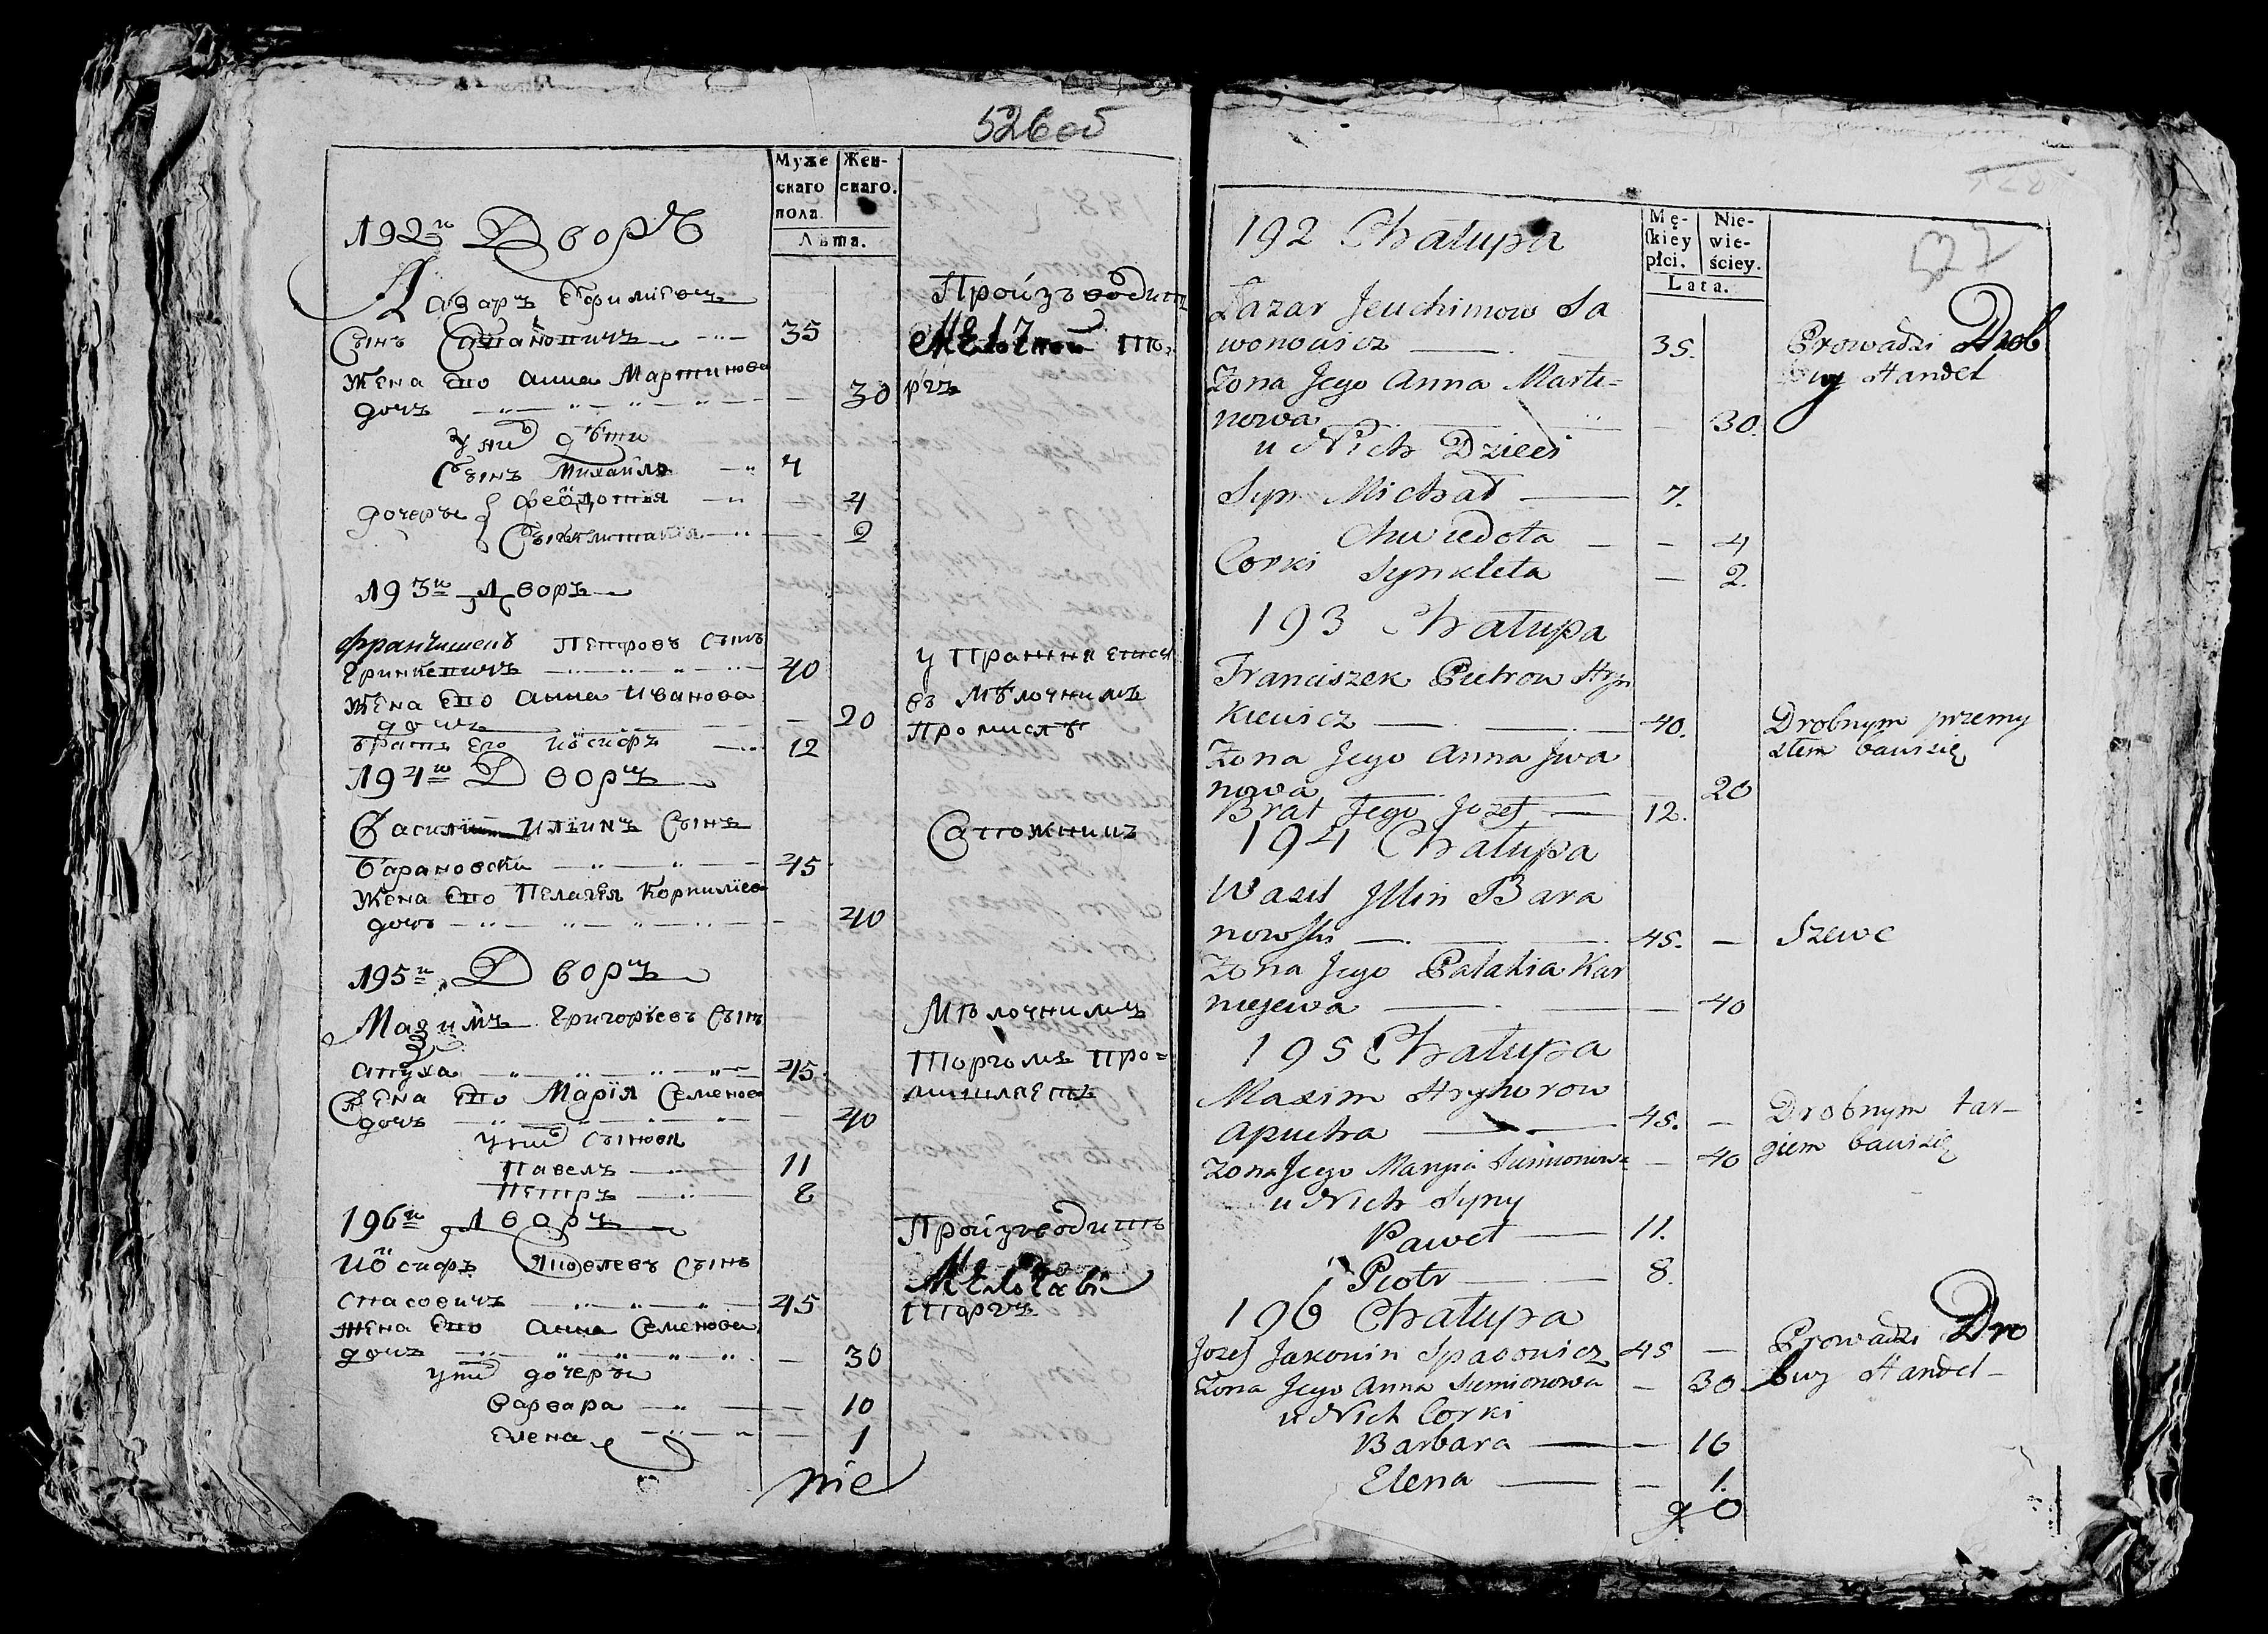 526 об
Муже
скаго
пола.
Жен-
скаго.
Лѣта.
192й Дворъ
Лазаръ Ефимїевъ
Сынъ 35 Произъводитъ
Мелочной то=
Жена Его Анна Мартинова
дочъ 30 ргъ
У ни дѣти
Сынъ Михайло 7
дочеры Феодотия 4
2
193й Дворъ
Францишекъ Петровъ Сынъ
Гринкевичъ 40 Упражняется
въ Мѣлочнимъ
Жена Его Анна Иванова
дочъ 20 Промислѣ
братъ Его Иосифъ 12
194й Дворъ
Василий Илїинъ Сынъ Сапожникъ
барановски 45
Жена Его Пелагея Корнилїева
дочъ 40
195й Дворъ
Мазимъ Григоръевъ Сынъ Мѣлочнимъ
апуха 45 Торгомъ про=
Жена Его Марїя Семенова мишляетъ
дочъ 40
У ни Сыновя
Павелъ 11
Петръ 8
196й Дворъ Произъводитъ
Иосифъ Яковлевъ Сынъ
спасовичъ 45 торгъ
Жена Его Анна Семенова
дочъ 30
У ни дочеры
Варвара 10
Елена 1
nie
527
Mę-
ſkiey
płci.
Nie-
wie-
ściey.
Lata.
192 Chałupa
Łazar Jeuchimow Sa
wonowicz 35. Prowadzi Drob
ny Handel
Żona Jego Anna Marti=
nowa 30.
u Nich Dzieci
Syn Michał 7.
Chwiedota 4
Corki Synkleta 2.
193 Chałupa
Franciszek Pietrow Hryn
kiewicz 40. Drobnym przemy
słem bawi się
Żona Jego Anna Jwa
nowa 20
Brat Jego Jozef 12.
194 Chałupa
Wasil Jllin Bara
nowſki 45. Szewc
Żona Jego Palahia Kar
niejewa 40
195 Chałupa
Maxim Hryhorow
Apucha 45. Drobnym tar-
giem bawi się
Żona Jego Maryia Siemionowa 40
u Nich Syny
Paweł 11.
Piotr 8.
196 Chałupa
Jozef Jakowin Spasowicz 45 Prowadzi Dro
bny Handel
Żona Jego Anna Siemionowa 30
u Nich Corki
Barbara 10
Elena 1.